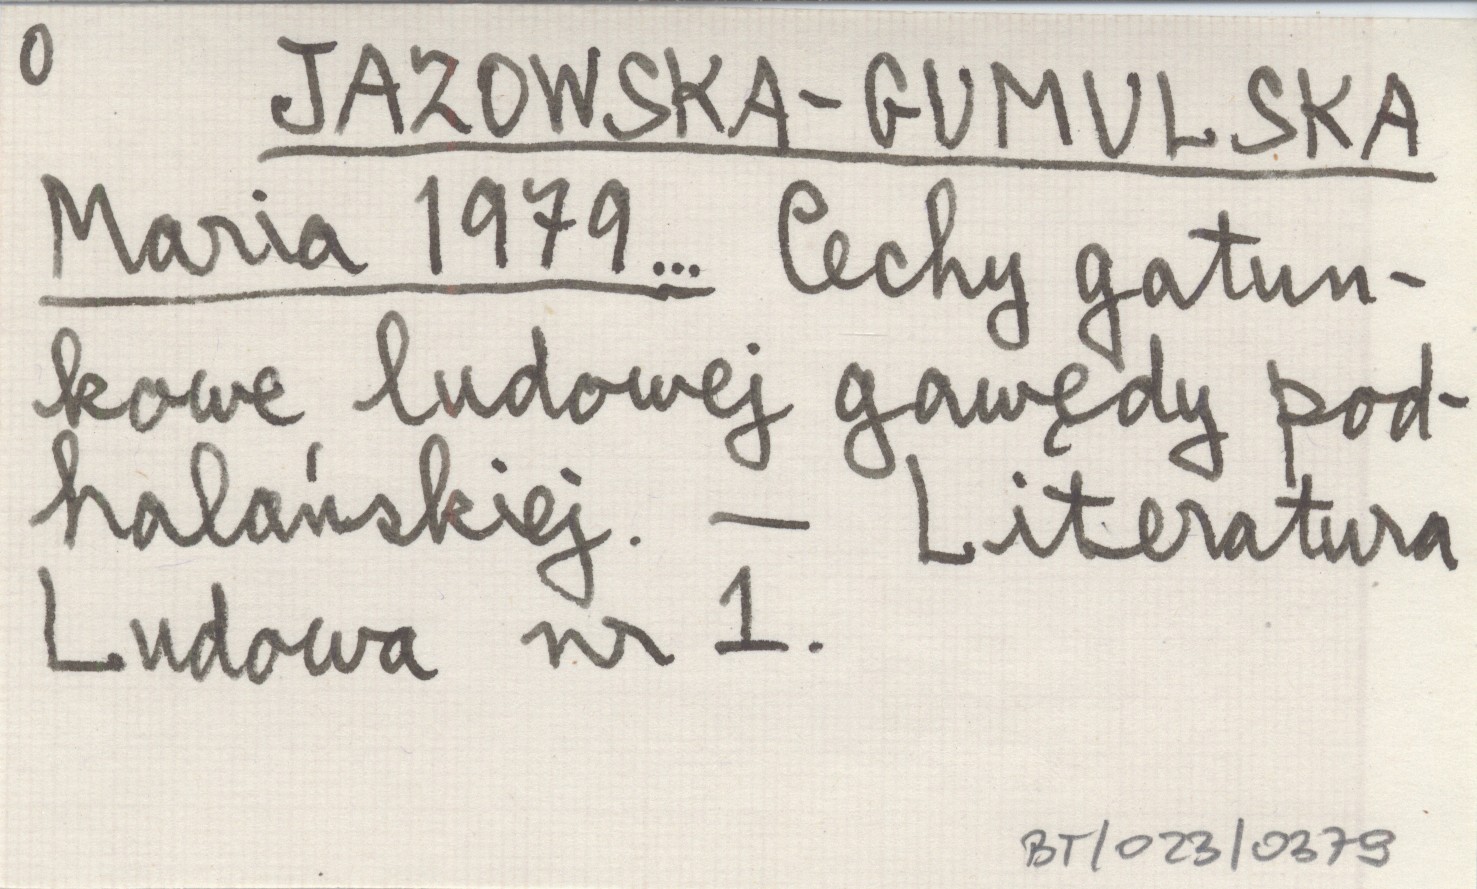 O
JAZOWSKA-GUMULSKA
Maria 1979... Cechy gatun-
kowe ludowej gawędy pod-
halańskiej. — Literatura
Ludowa nr 1.
BT/023/0379